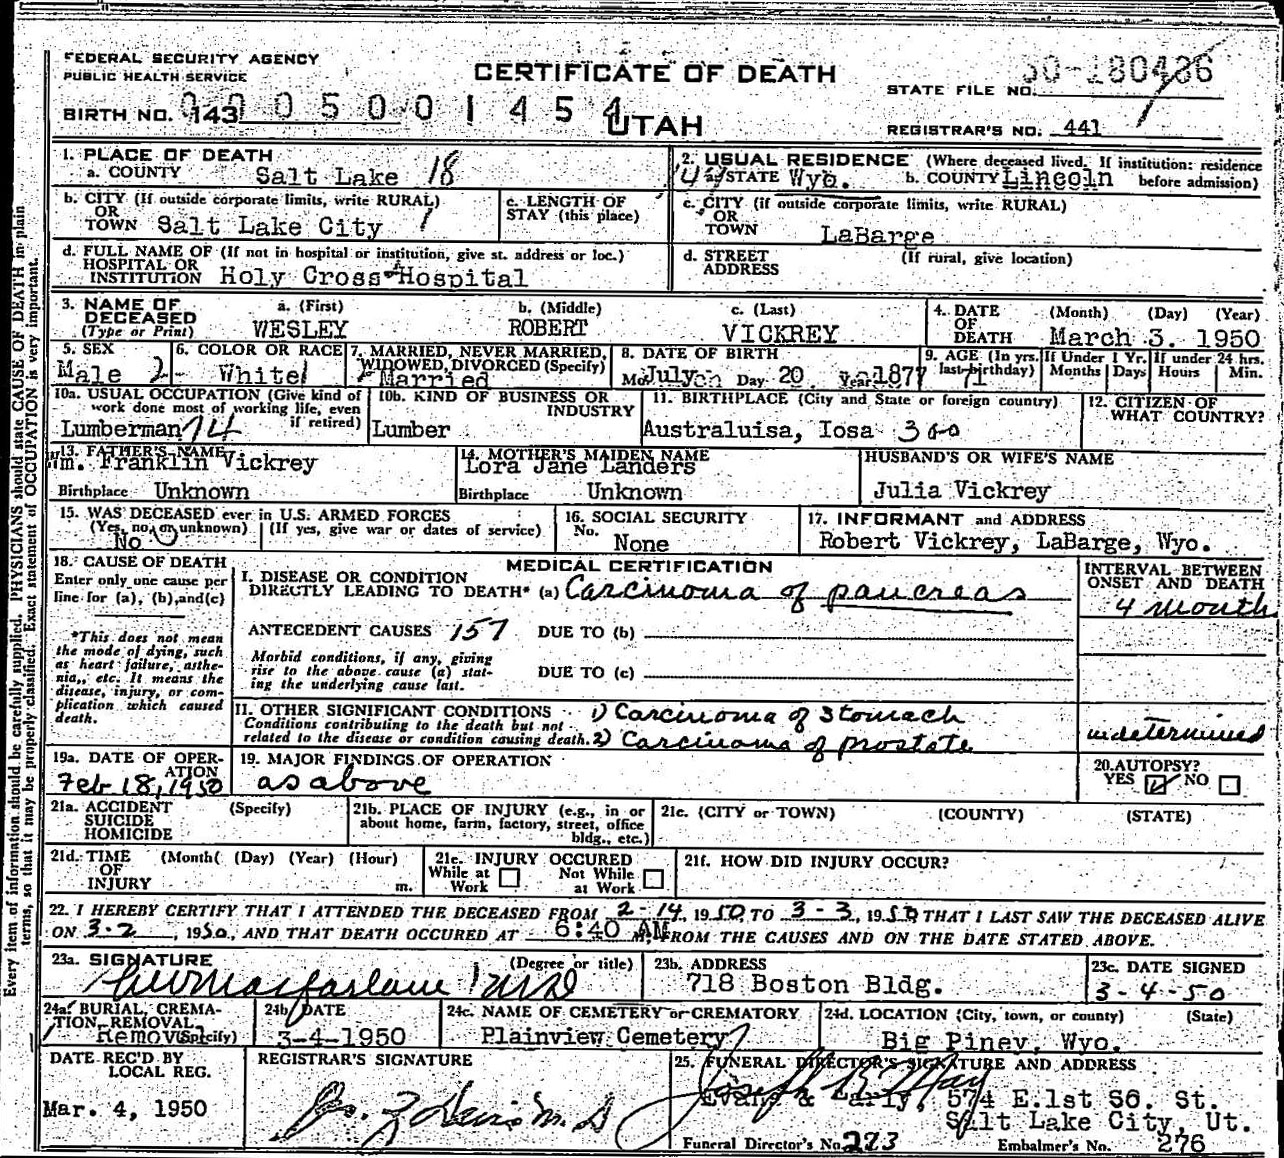 FEDERAL SECURITY AGENCY
PUBLIC HEALTH SERVICE
CERTIFICATE OF DEATH
UTAH
BIRTH NO. 143
STATE FILE NO. 50-180436
REGISTRAR'S NO. 441
1. PLACE OF DEATH
a. COUNTY Salt Lake 18
2. USUAL RESIDENCE (Where deceased lived. If institution: residence before admission)
a. STATE Wyo. b. COUNTY Lincoln
b. CITY (If outside corporate limits, write RURAL) OR TOWN Salt Lake City 1
c. LENGTH OF STAY (this place)
c. CITY (if outside corporate limits, write RURAL) OR TOWN LaBarge
d. FULL NAME OF (If not in hospital or institution, give st. address or loc.) HOSPITAL OR INSTITUTION Holy Cross Hospital
d. STREET ADDRESS (If rural, give location)
3. NAME OF DECEASED (Type or Print)
a. (First) WESLEY
b. (Middle) ROBERT
c. (Last) VICKREY
4. DATE OF DEATH (Month) (Day) (Year)
March 3. 1950
5. SEX Male 2
6. COLOR OR RACE White 1
7. MARRIED, NEVER MARRIED, WIDOWED, DIVORCED (Specify) Married
8. DATE OF BIRTH
Mo. July Day 20 Year 1877
9. AGE (In yrs. last birthday) 71
If Under 1 Yr. Months Days
If under 24 hrs. Hours Min.
10a. USUAL OCCUPATION (Give kind of work done most of working life, even if retired)
Lumberman 74
10b. KIND OF BUSINESS OR INDUSTRY
Lumber
11. BIRTHPLACE (City and State or foreign country)
Australuisa, Iosa
12. CITIZEN OF WHAT COUNTRY?
13. FATHER'S NAME
Wm. Franklin Vickrey
Birthplace Unknown
14. MOTHER'S MAIDEN NAME
Lora Jane Landers
Birthplace Unknown
HUSBAND'S OR WIFE'S NAME
Julia Vickrey
15. WAS DECEASED ever in U.S. ARMED FORCES
(Yes, no, or unknown) (If yes, give war or dates of service)
No
16. SOCIAL SECURITY No.
None
17. INFORMANT and ADDRESS
Robert Vickrey, LaBarge, Wyo.
18. CAUSE OF DEATH
Enter only one cause per line for (a), (b), and (c)
*This does not mean the mode of dying, such as heart failure, asthenia,, etc. It means the disease, injury, or complication which caused death.
MEDICAL CERTIFICATION
I. DISEASE OR CONDITION DIRECTLY LEADING TO DEATH* (a) Carcinoma of pancreas
INTERVAL BETWEEN ONSET AND DEATH
4 month
ANTECEDENT CAUSES 157 DUE TO (b)
Morbid conditions, if any, giving rise to the above cause (a) stating the underlying cause last.
DUE TO (c)
II. OTHER SIGNIFICANT CONDITIONS
Conditions contributing to the death but not related to the disease or condition causing death.
1) Carcinoma of Stomach
2) Carcinoma of prostate
undetermined
19a. DATE OF OPERATION
Feb 18, 1950
19. MAJOR FINDINGS OF OPERATION
as above
20. AUTOPSY?
YES NO
21a. ACCIDENT (Specify) SUICIDE HOMICIDE
21b. PLACE OF INJURY (e.g., in or about home, farm, factory, street, office bldg., etc.)
21c. (CITY or TOWN) (COUNTY) (STATE)
21d. TIME (Month( (Day) (Year) (Hour) OF INJURY m.
21e. INJURY OCCURED
While at Work Not While at Work
21f. HOW DID INJURY OCCUR?
22. I HEREBY CERTIFY THAT I ATTENDED THE DECEASED FROM 2-14, 1950 TO 3-3, 1950 THAT I LAST SAW THE DECEASED ALIVE
ON 3-2, 1950, AND THAT DEATH OCCURED AT 6:40 AM, FROM THE CAUSES AND ON THE DATE STATED ABOVE.
23a. SIGNATURE (Degree or title)
23b. ADDRESS
718 Boston Bldg.
23c. DATE SIGNED
3-4-50
24a. BURIAL, CREMATION, REMOVAL (Specify)
Removal
24b. DATE
3-4-1950
24c. NAME OF CEMETERY or CREMATORY
Plainview Cemetery
24d. LOCATION (City, town, or county) (State)
Big Piney, Wyo.
DATE REC'D BY LOCAL REG.
Mar. 4, 1950
REGISTRAR'S SIGNATURE
25. FUNERAL DIRECTOR'S SIGNATURE AND ADDRESS
574 E.1st So. St.
Salt Lake City, Ut.
Funeral Director's No. 273 Embalmer's No. 276
Every item of information should be carefully supplied. PHYSICIANS should state CAUSE OF DEATH in plain
terms, so that it may be properly classified. Exact statement of OCCUPATION is very important.